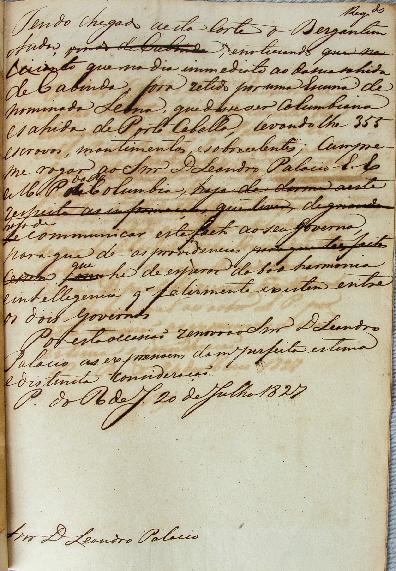 Regdo
Tendo chegado a esta Corte o Bergantim
vinda de Cabinda, e noticiando que na
que no dia immediato ao da sua sahida
de Cabinda, fora retido por uma Escuna de
nominada Leona, que diz ser Columbiana
e sahida de Porto Cabello, levando lhe 355
escravos, mantimentos, e sobrecelentes; Cumpre
me rogar ao Snr D. Leandro Palacio E. E.
e M. P. da de Columbia, haja de
respeito as informações, que tiver,
de communicar este facto ao seu Governo,
para que dê as providencias
que he de esperar da boa harmonia
e intelligencia q felizmente existem entre
os dois Governos
Por esta occasião renovo ao Snr D. Leandro
Palacio as expressoens da m perfeita estima
e distincta Consideração
P. do R de J. 20 de Julho 1827
Snr D. Leandro Palacio